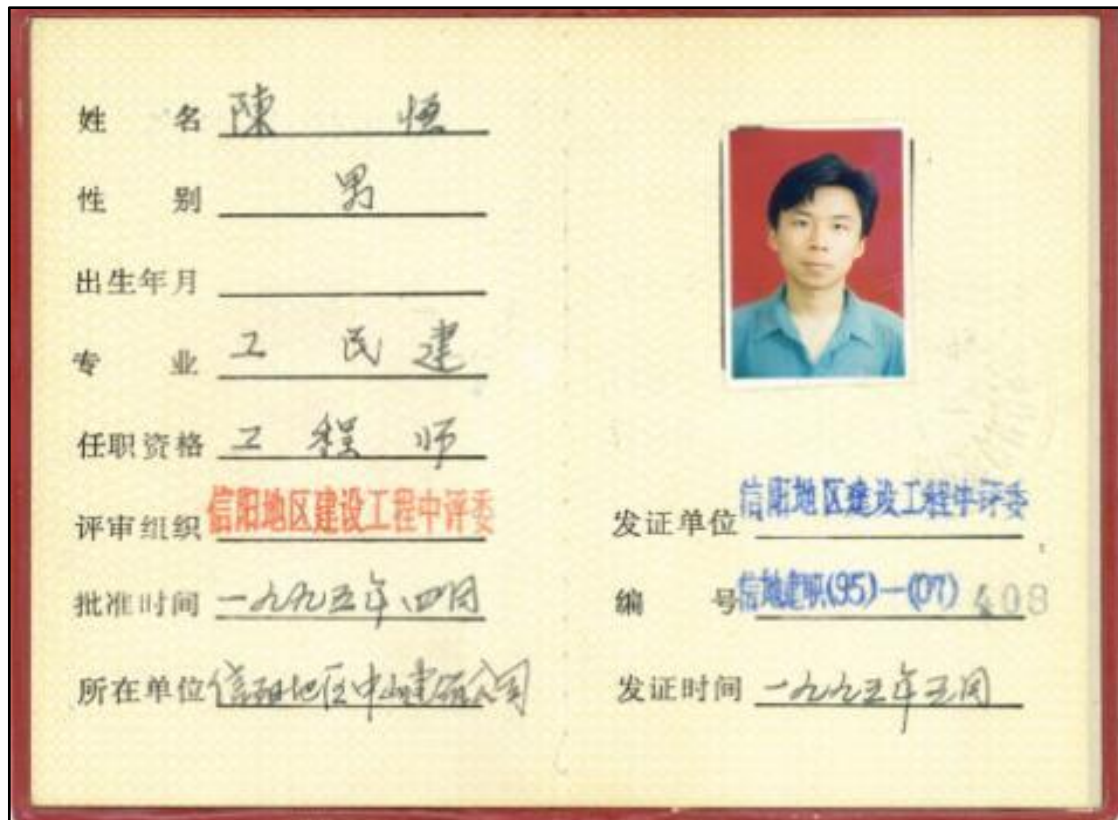 姓 名 陳 悟
性 别 男
出生年月
专 业 工 民 建
任职资格 工 程 师
评审组织 信阳地区建设工程中评委
批准时间 一九九五年四月
所在单位 信阳地区中山建筑公司
发证单位 信阳地区建设工程中评委
编 号 信地建职(95)—(07) 408
发证时间 一九九五年五月